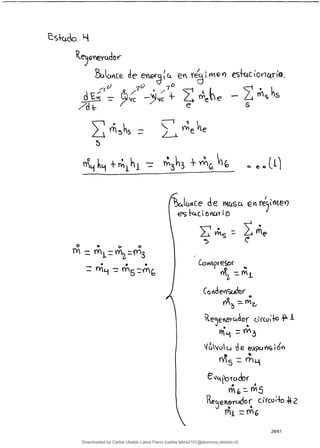 Estado 4
Regenerador
Balance de energía en régimen estacionario.
dEs/dt = Q̇vc - Ẇvc + Σ ṁe he - Σ ṁs hs
e s
Σ ṁs hs = Σ ṁe he
s e
ṁ4 h4 + ṁ1 h1 = ṁ3 h3 + ṁ6 h6 ... (1)
Balance de masa en régimen
estacionario
Σ ṁs = Σ ṁe
s e
ṁ = ṁ1 = ṁ2 = ṁ3
= ṁ4 = ṁ5 = ṁ6
Compresor
ṁ2 = ṁ1
Condensador
ṁ3 = ṁ2
Regenerador circuito # 1
ṁ4 = ṁ3
Válvula de expansión
ṁ5 = ṁ4
evaporador
ṁ6 = ṁ5
Regenerador circuito #2
ṁ1 = ṁ6
28/61
Downloaded by Carlos Ubaldo Labra Fierro (carlos.labra2101@alumnos.ubiobio.cl)